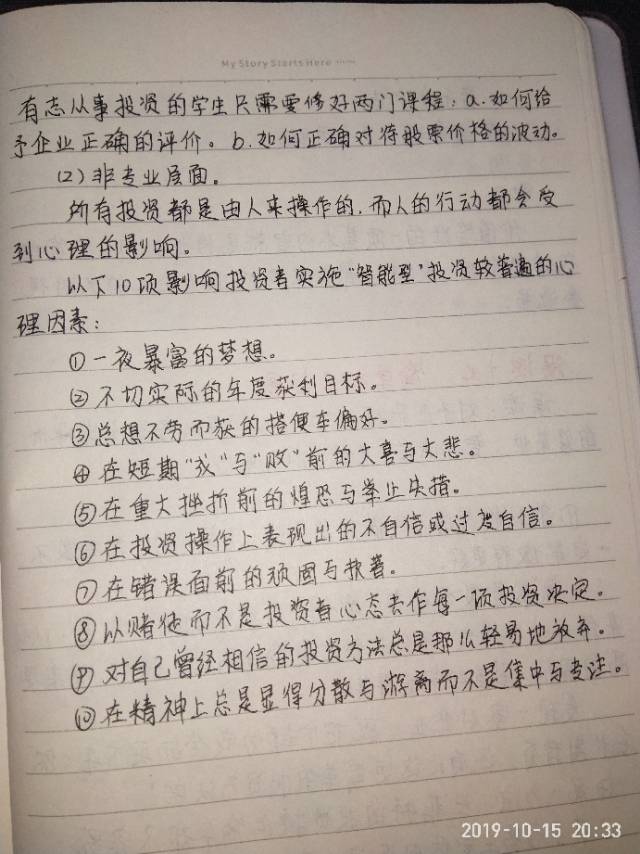 My Story Starts Here ......
有志从事投资的学生只需要修好两门课程：a.如何给
予企业正确的评价。b.如何正确对待股票价格的波动。
(2)非专业层面。
所有投资都是由人来操作的,而人的行动都会受
到心理的影响。
以下10项影响投资者实施“智能型”投资较普遍的心
理因素：
①一夜暴富的梦想。
②不切实际的年度获利目标。
③总想不劳而获的搭便车偏好。
④在短期“成”与“败”前的大喜与大悲。
⑤在重大挫折前的惶恐与举止失措。
⑥在投资操作上表现出的不自信或过度自信。
⑦在错误面前的顽固与执著。
⑧以赌徒而不是投资者心态去作每一项投资决定。
⑨对自己曾经相信的投资方法总是那么轻易地放弃。
⑩在精神上总是显得分散与游离而不是集中与专注。
2019-10-15 20:33